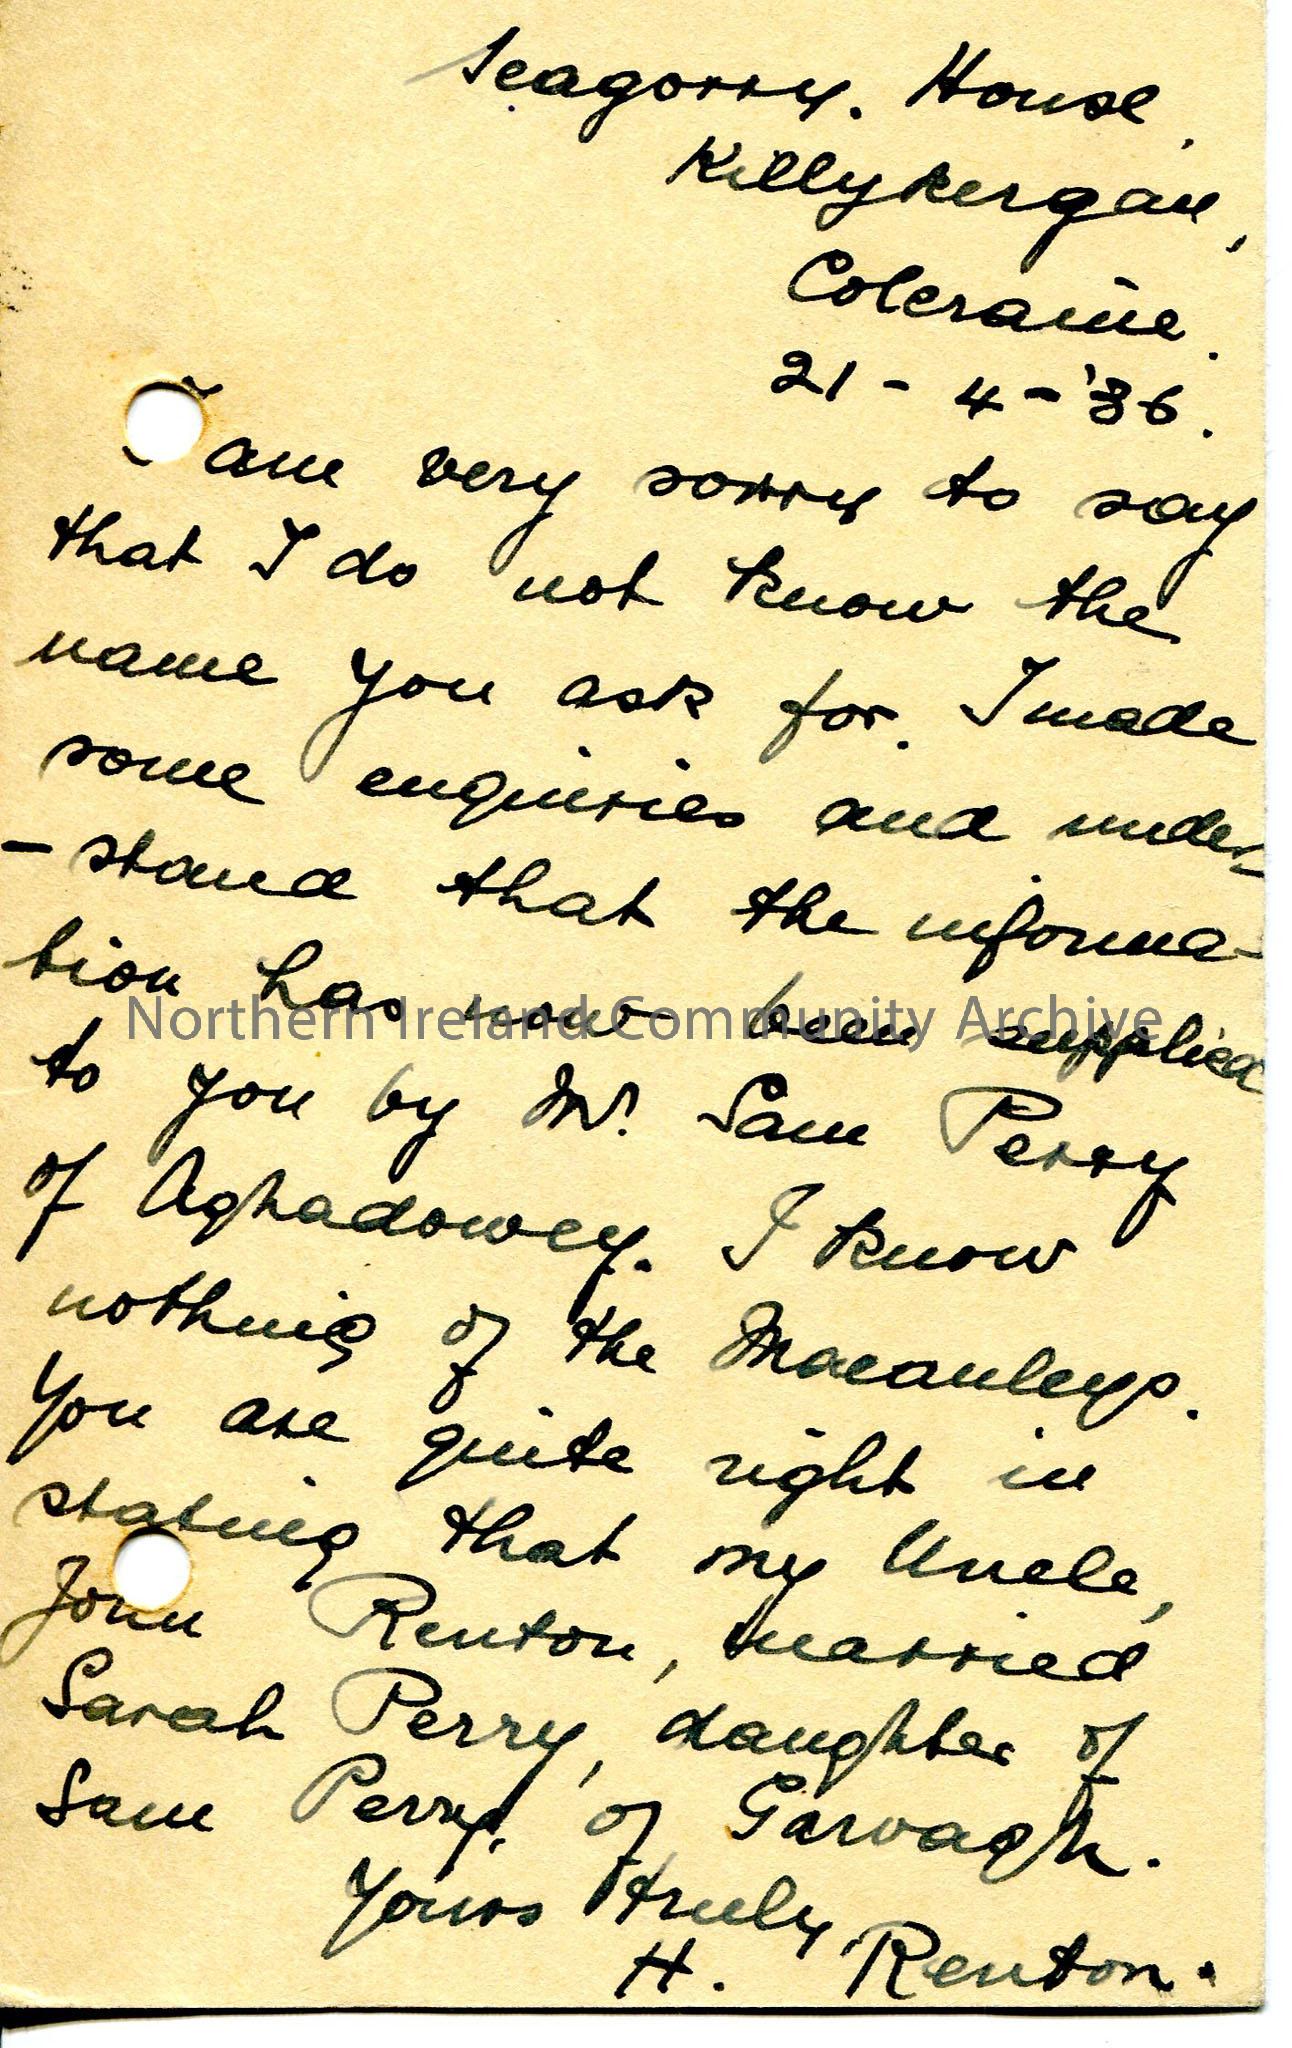 Seagorry. House,
Killykergan,
Coleraine.
21 - 4 - '36.
I am very sorry to say
that I do not know the
name you ask for. I made
some enquiries and under-
-stand that the informa-
tion has now been supplied
Northern Ireland Community Archive
to you by Mr. Sam Perry
of Aghadowey. I know
nothing of the Macauleys.
You are quite right in
stating that my Uncle,
John Renton, married
Sarah Perry, daughter of
Sam Perry, of Garvagh.
Yours truly,
H. Renton.